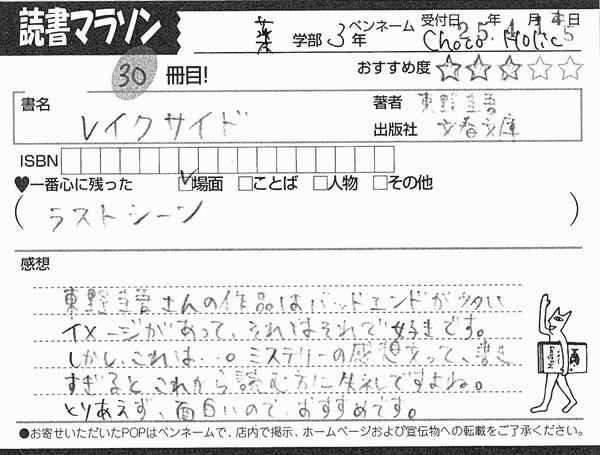 読書マラソン
薬 学部 3年 ペンネーム Choco Holic 受付日 25年 4月 15日
30 冊目! おすすめ度 ☆☆☆☆☆
書名 レイクサイド
著者 東野圭吾
出版社 文春文庫
ISBN
♥一番心に残った ☑場面 □ことば □人物 □その他
(ラストシーン)
感想
東野圭吾さんの作品はバッドエンドが多い
イメージがあって、それはそれで好きです。
しかし、これは…。ミステリーの感想文って、書き
すぎると、これから読む方に失礼ですよね。
とりあえず、面白いので、おすすめです。
●お寄せいただいたPOPはペンネームで、店内で掲示、ホームページおよび宣伝物への転載をご了承ください。